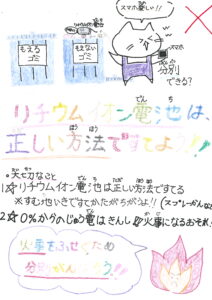 スマホ重い!!
もえる
ゴミ
もえない
ゴミ
スマホ
分別
できる?
リチウムイオン電池は、
正しい方法ですてよう!!
大切なこと
1☆リチウムイオン電池は正しい方法ですてる
※すむ地いきですてかたがちがうよ!!
2☆0%からのじゅう電はきんし
火事になるおそれ
火事をふせぐため
分別がんばろう!!